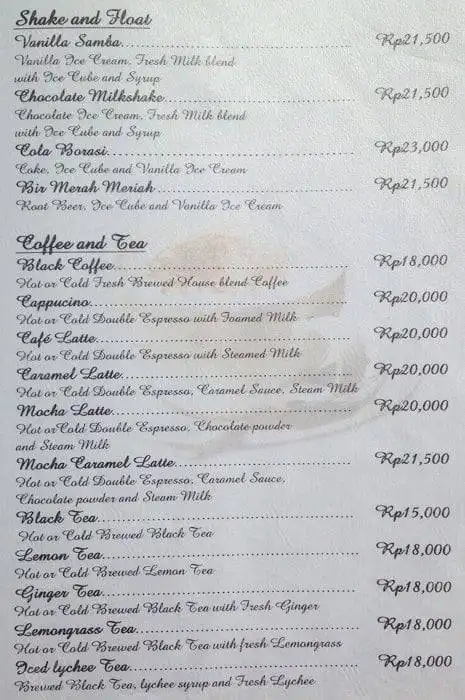 Shake and Float
Vanilla Samba Rp21,500
Vanilla Ice Cream, Fresh Milk blend
with Ice Cube and Syrup
Chocolate Milkshake Rp21,500
Chocolate Ice Cream, Fresh Milk blend
with Ice Cube and Syrup
Cola Borasi Rp23,000
Coke, Ice Cube and Vanilla Ice Cream
Bir Merah Meriah Rp21,500
Root Beer, Ice Cube and Vanilla Ice Cream
Coffee and Tea
Black Coffee Rp18,000
Hot or Cold Fresh Brewed House blend Coffee
Cappucino Rp20,000
Hot or Cold Double Espresso with Foamed Milk
Café Latte Rp20,000
Hot or Cold Double Espresso with Steamed Milk
Caramel Latte Rp20,000
Hot or Cold Double Espresso, Caramel Sauce, Steam Milk
Mocha Latte Rp20,000
Hot or Cold Double Espresso, Chocolate powder
and Steam Milk
Mocha Caramel Latte Rp21,500
Hot or Cold Double Espresso, Caramel Sauce,
Chocolate powder and Steam Milk
Black Tea Rp15,000
Hot or Cold Brewed Black Tea
Lemon Tea Rp18,000
Hot or Cold Brewed Lemon Tea
Ginger Tea Rp18,000
Hot or Cold Brewed Black Tea with Fresh Ginger
Lemongrass Tea Rp18,000
Hot or Cold Brewed Black Tea with fresh Lemongrass
Iced lychee Tea Rp18,000
Brewed Black Tea, lychee syrup and Fresh Lychee